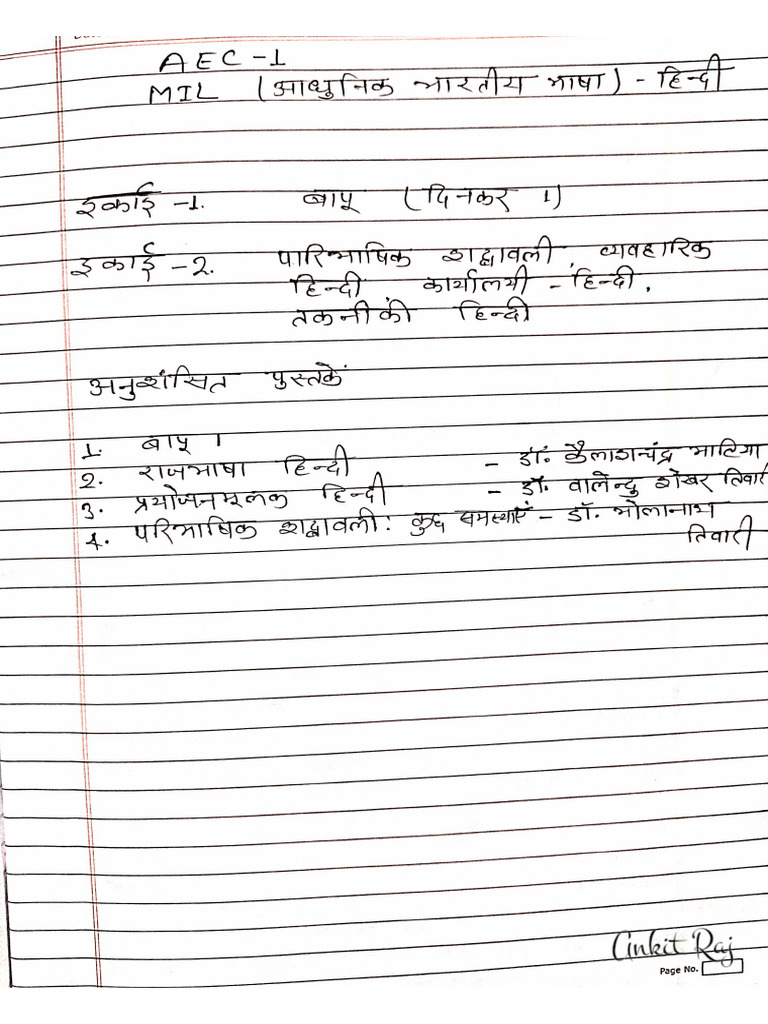 AEC-1
MIL (आधुनिक भारतीय भाषा) - हिन्दी
इकाई -1. बापू (दिनकर 1)
इकाई -2. पारिभाषिक शब्दावली, व्यवहारिक
हिन्दी कार्यालयी - हिन्दी,
तकनीकी हिन्दी
अनुशंसित पुस्तकें
1. बापू ।
2. राजभाषा हिन्दी - डॉ. कैलाशचंद्र भाटिया
3. प्रयोजनमूलक हिन्दी - डॉ. वालेन्दु शेखर तिवारी
4. परिभाषिक शब्दावली: कुछ समस्याएं - डॉ. भोलानाथ
तिवारी
Ankit Raj
Page No.